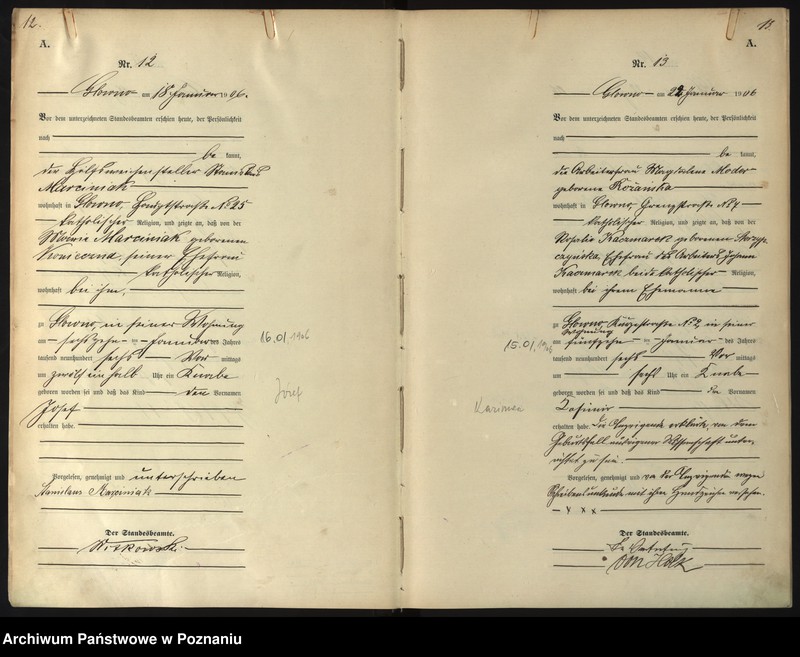 12.
A.
Nr. 12
Glowno am 18 Januar 1906.
Vor dem unterzeichneten Standesbeamten erschien heute, der Persönlichkeit
nach
be kannt,
der Hilfsweichensteller Stanislaus
Marciniak
wohnhaft in Glowno, Hauptstraße No 25
katholischer Religion, und zeigte an, daß von der
Marie Marciniak geborenen
seiner Ehefrau
katholischer Religion,
wohnhaft bei ihm,
zu Glowno, in seiner Wohnung
am sechszehn ten Januar des Jahres
tausend neunhundert sechs Vor mittags
um zwölf ein halb Uhr ein Knabe
geboren worden sei und daß das Kind den Vornamen
Josef
erhalten habe.
Vorgelesen, genehmigt und unterschrieben
Stanislaus Marciniak
Der Standesbeamte.
Witkowski
16.01.1906
Józef
13.
A.
Nr. 13
Glowno am 22 Januar 1906
Vor dem unterzeichneten Standesbeamten erschien heute, der Persönlichkeit
nach
be kannt,
die Arbeiterfrau Magdalena Moder
geborene
wohnhaft in Glowno, Grenzstraße No 4
katholischer Religion, und zeigte an, daß von der
Rosalie Kaczmarek geborenen
Ehefrau des Arbeiters Johann
Kaczmarek beide katholischer Religion,
wohnhaft bei ihrem Ehemanne
zu Glowno, No 2, in seiner
Wohnung
am fünfzehn ten Januar des Jahres
tausend neunhundert sechs Vor mittags
um sechs Uhr ein Knabe
geboren worden sei und daß das Kind den Vornamen
Casimir
erhalten habe. Die Anzeigende erklärte, von dem
Geburtsfall aus eigener Wissenschaft unter-
richtet zu sein.
Vorgelesen, genehmigt und von der Anzeigenden wegen
Schreibensunkunde mit ihrem Handzeichen versehen.
x x x
Der Standesbeamte.
In Vertretung
15.01.1906
Archiwum Państwowe w Poznaniu